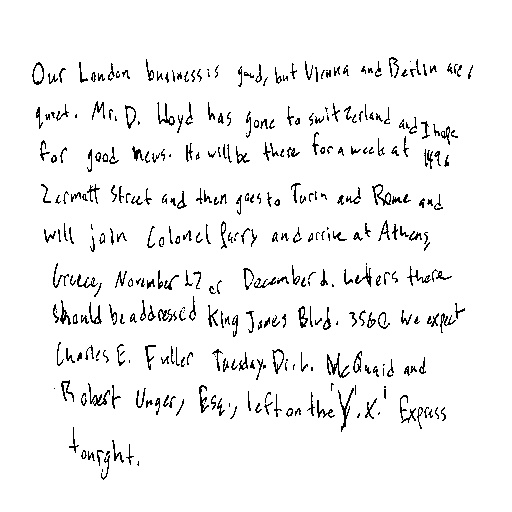 Our London business is good, but Vienna and Berlin are
quiet. Mr. D. Lloyd has gone to switzerland and I hope
for good news. He will be there for a week at 1496
Zermatt Street and then goes to Turin and Rome and
will join Colonel Parry and arrive at Athens,
Greece, November 27 or December 2. Letters there
should be addressed King James Blvd. 3580. We expect
Charles E. Fuller Tuesday. Dr. L. McQuaid and
Robert Unger, Esq., left on the 'Y.X.' Express
tonight.